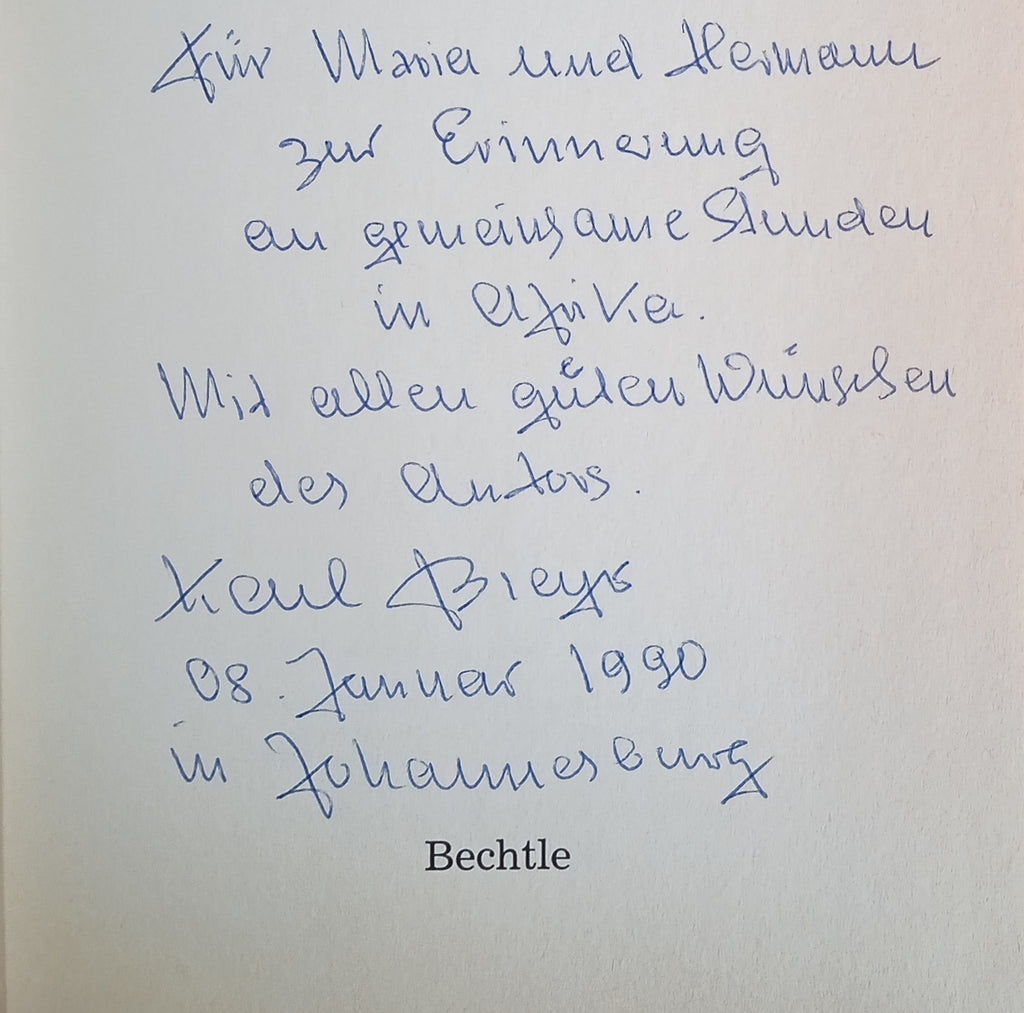 Für Maria und Hermann
zur Erinnerung
an gemeinsame Stunden
in Afrika.
Mit allen guten Wünschen
des Autors.
Karl
08. Januar 1990
in Johannesburg
Bechtle